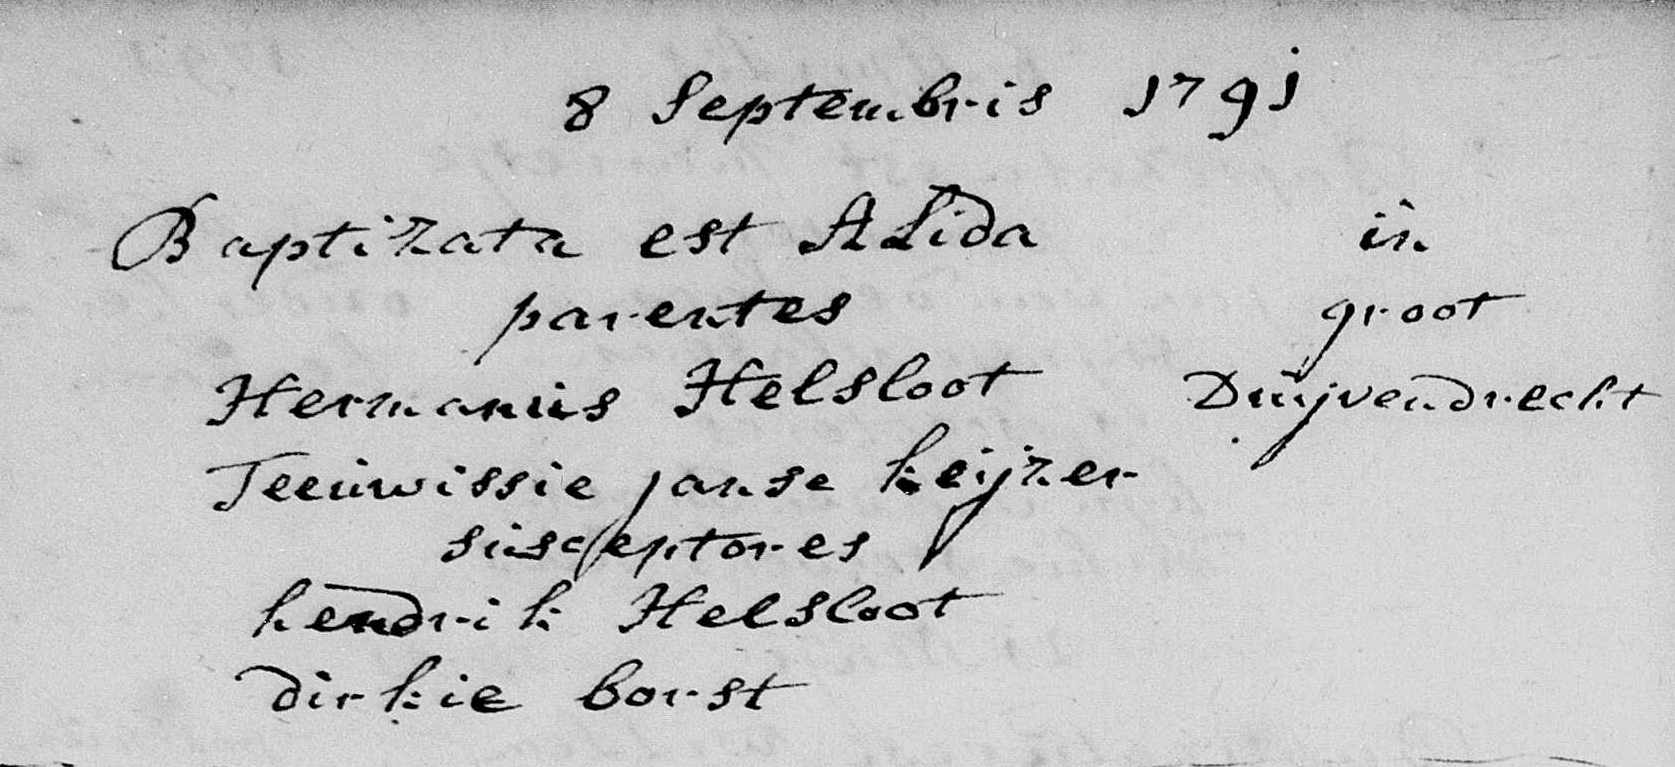 8 Septembris 1791
Baptizata est Alida in
parentes groot
Hermanus Helsloot Duijvendrecht
Teeuwissie janse keijzer
susceptores
hendrik Helsloot
dirkie borst